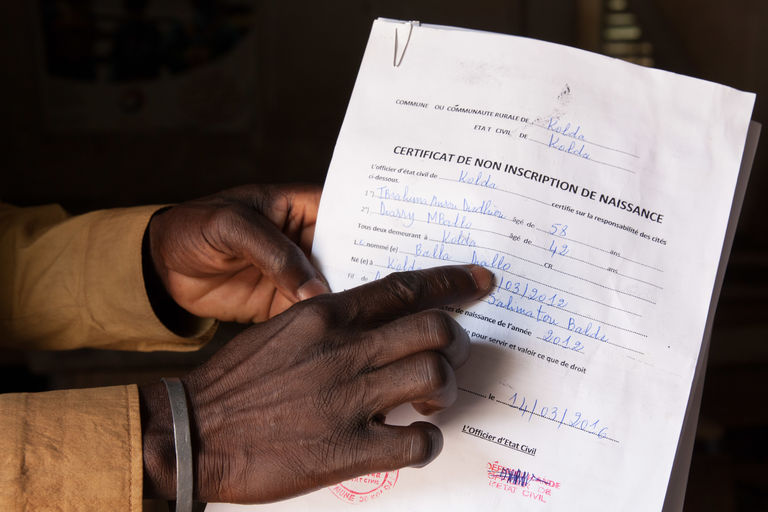 COMMUNE OU COMMUNAUTE RURALE DE Kolda
ETAT CIVIL DE Kolda
CERTIFICAT DE NON INSCRIPTION DE NAISSANCE
L'officier d'état civil de Kolda certifie sur la responsabilité des cités
ci-dessous.
1°) Ibrahima âgé de 58 ans
2°) Diassy MBallo âgé de 42 ans
Tous deux demeurant à Kolda CR
Le nommé (e) Balla Diallo
Né (e) à Kolda /03/2012
Fil de Salimatou Balde
tes de naissance de l'année 2012
e pour servir et valoir ce que de droit
le 14/03/2016
L'Officier d'Etat Civil
ETAT CIVIL
DE
L'ETAT CIVIL